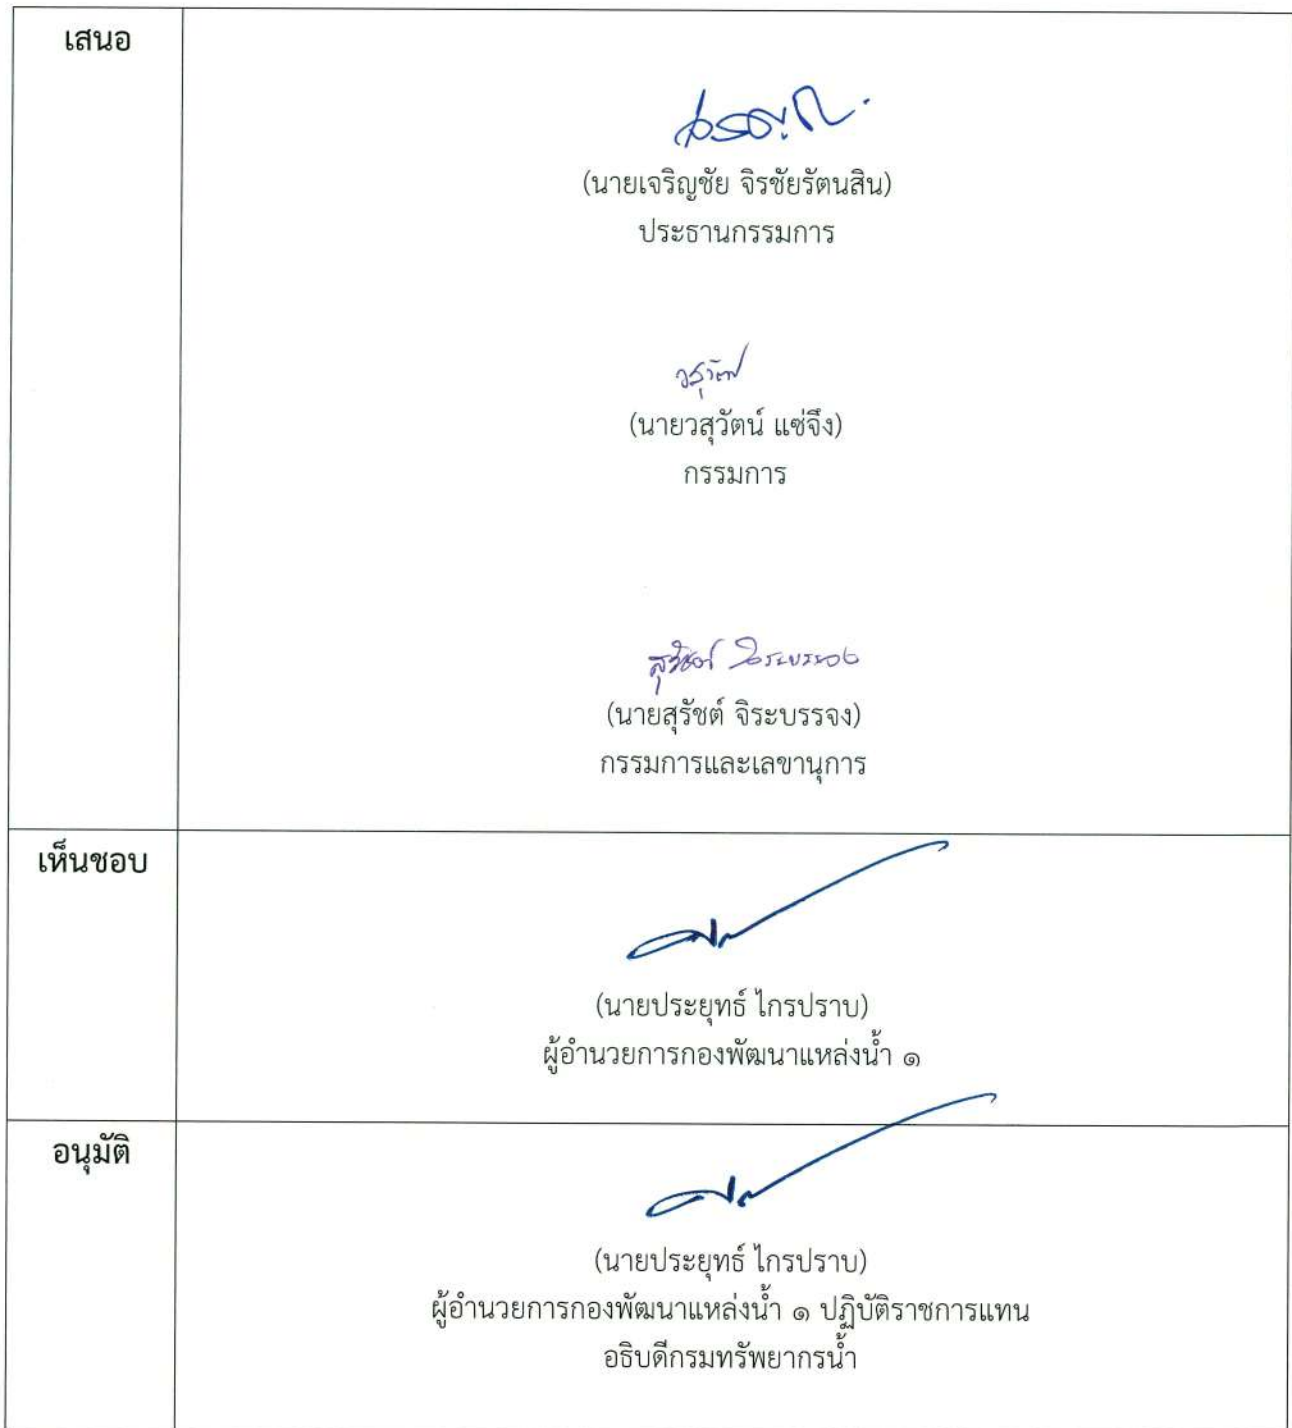 เสนอ
(นายเจริญชัย จิรชัยรัตนสิน)
ประธานกรรมการ
วสุวัตน์
(นายวสุวัตน์ แซ่จึง)
กรรมการ
สุรัชต์ จิระบรรจง
(นายสุรัชต์ จิระบรรจง)
กรรมการและเลขานุการ
เห็นชอบ
(นายประยุทธ์ ไกรปราบ)
ผู้อำนวยการกองพัฒนาแหล่งน้ำ ๑
อนุมัติ
(นายประยุทธ์ ไกรปราบ)
ผู้อำนวยการกองพัฒนาแหล่งน้ำ ๑ ปฏิบัติราชการแทน
อธิบดีกรมทรัพยากรน้ำ